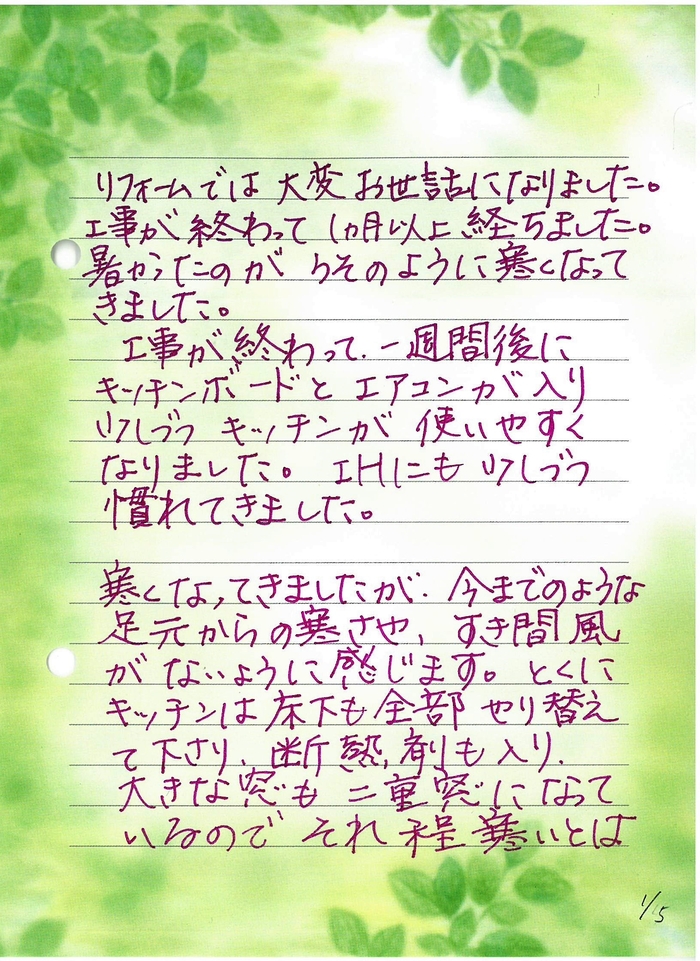 リフォームでは 大変お世話になりました。
工事が終わって 1ヵ月以上 経ちました。
暑かったのが うそのように寒くなって
きました。
工事が終わって、一週間後に
キッチンボードと エアコンが入り
少しづつ キッチンが 使いやすく
なりました。 IHにも 少しづつ
慣れてきました。
寒くなってきましたが、今までのような
足元からの寒さや、すき間風
がないように感じます。とくに
キッチンは床下も全部 やり替え
て下さり、断熱剤も入り、
大きな窓も 二重窓になって
いるので それ程寒いとは
1/5